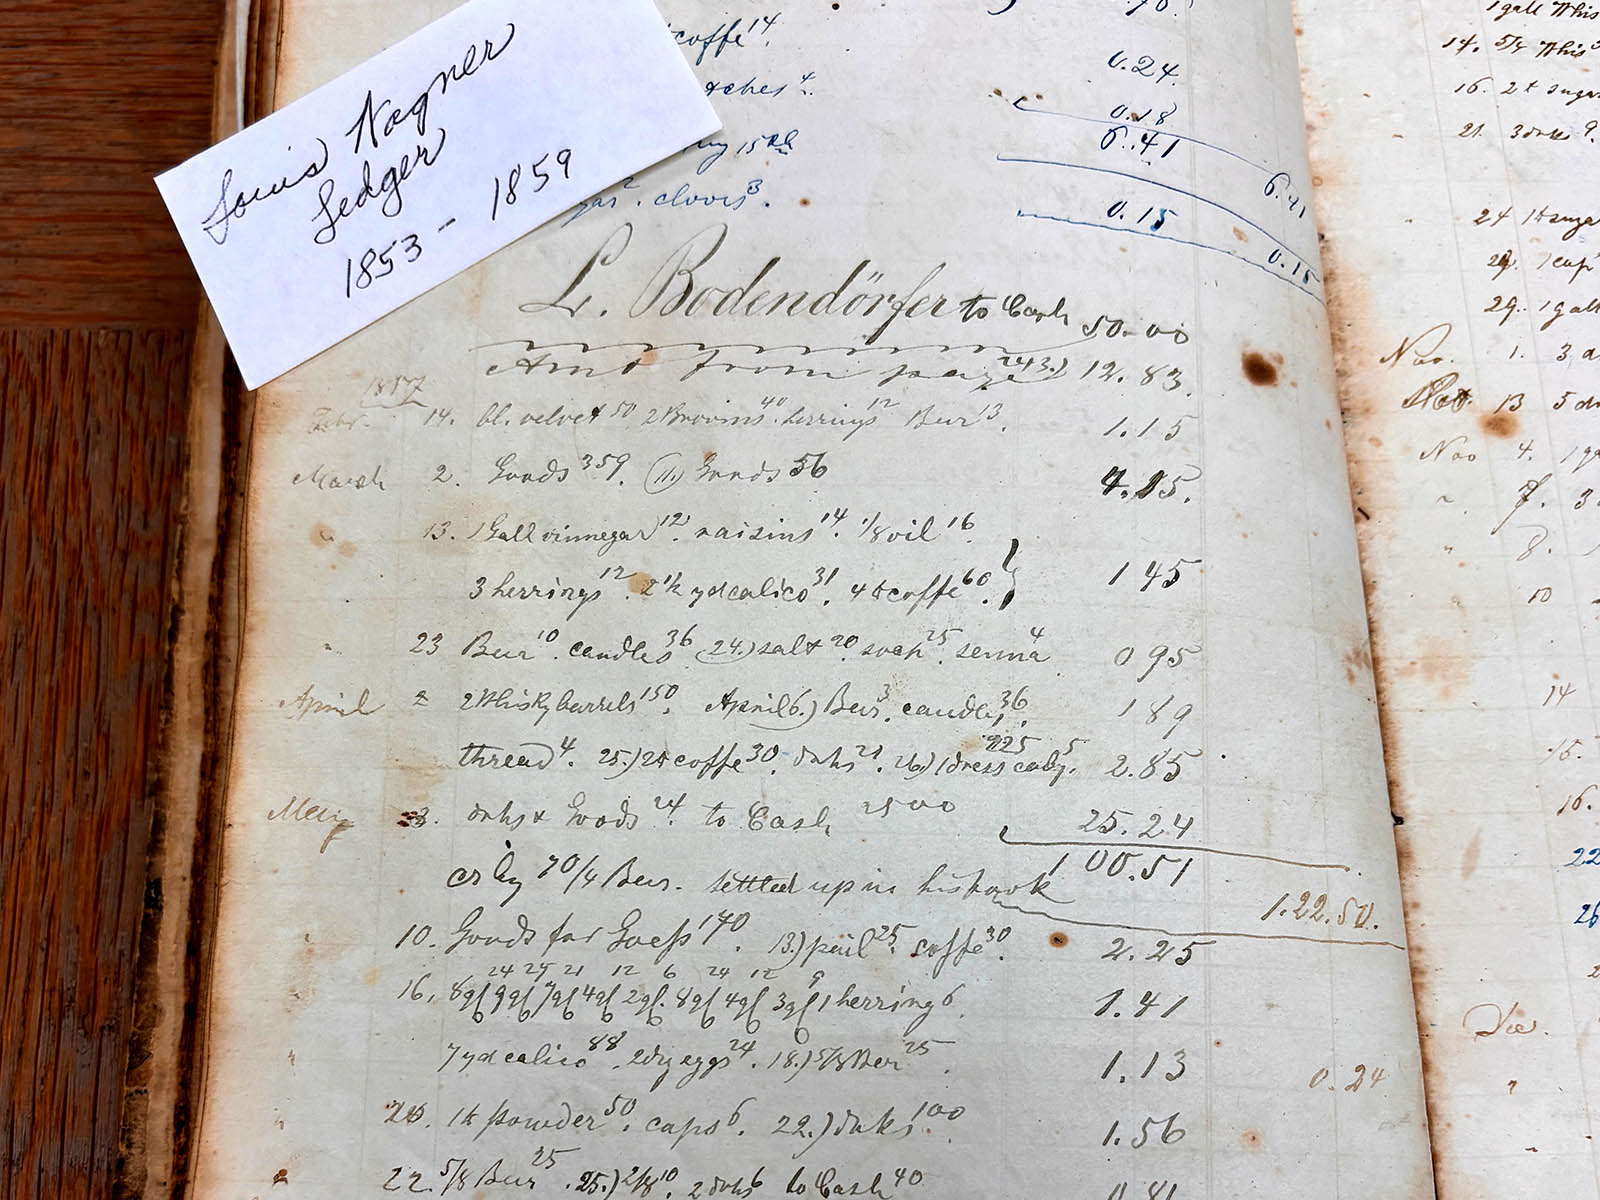 Louis Wagner
Ledger
1853 - 1859
coffe 14.
0.24
tches 4.
0.18
6.41
15th
6.41
2. cloves 3.
0.15
0.15
L. Bodendörfer to Cash 50.00
Amt from page 243.) 12.83.
1857
Febr. 14. bl. velvet 50 2 Brooms 40. herrings 12 Beer 13. 1.15
March 2. Goods 359. (11.) Goods 56 4.15.
" 13. 1 Gall vinnegar 12. raisins 14. 1/8 oil 16
3 herrings 12. 2 1/2 yd calico 31. 4 lb coffe 60. } 1 45
" 23 Beer 10. candles 36. 24.) salt 20. 25. senna 4 0 95
April 2 2 Whisky barrels 150. April 6.) Beer 3. candles 36. 1 89
thread 4. 25.) 2 lb coffe 30. dnks 21. 26.) 1 dress 225 5. 2.85
May 3. dnks & Goods 24. to Cash 25 00 25.24
cr by 70/4 Beer. settled up in his book 100.51
1.22.50.
" 10. Goods for Goess 170. 13.) pail 25. coffe 30. 2.25
24 27 21 12 6 24 12 9
" 16. 8gl 9gl 7gl 4gl 2gl. 8gl 4gl 3gl 1 herring 6. 1.41
" 7 yd calico 88. 2 dz eggs 24. 18.) 5/8 Beer 25. 1.13
0.24
" 20. 1 lb powder 50. caps 6. 22.) dnks 100. 1.56
" 22. 5/8 Beer 25. 25.) 2/8 10. 2 dnks 6 to Cash 40 0.41
1 gall Whis
14. 5/8 Whis
16. 2 lb sugar
21. 3 dnks 9.
24 1 lb sugar
29. 1 cup
29. 1 gall
Nov. 1. 3
Oct. 13 5 dn
Nov 4. 1 g
" 7. 3
" 8.
" 10
14
15.
16.
22
26
Dec.